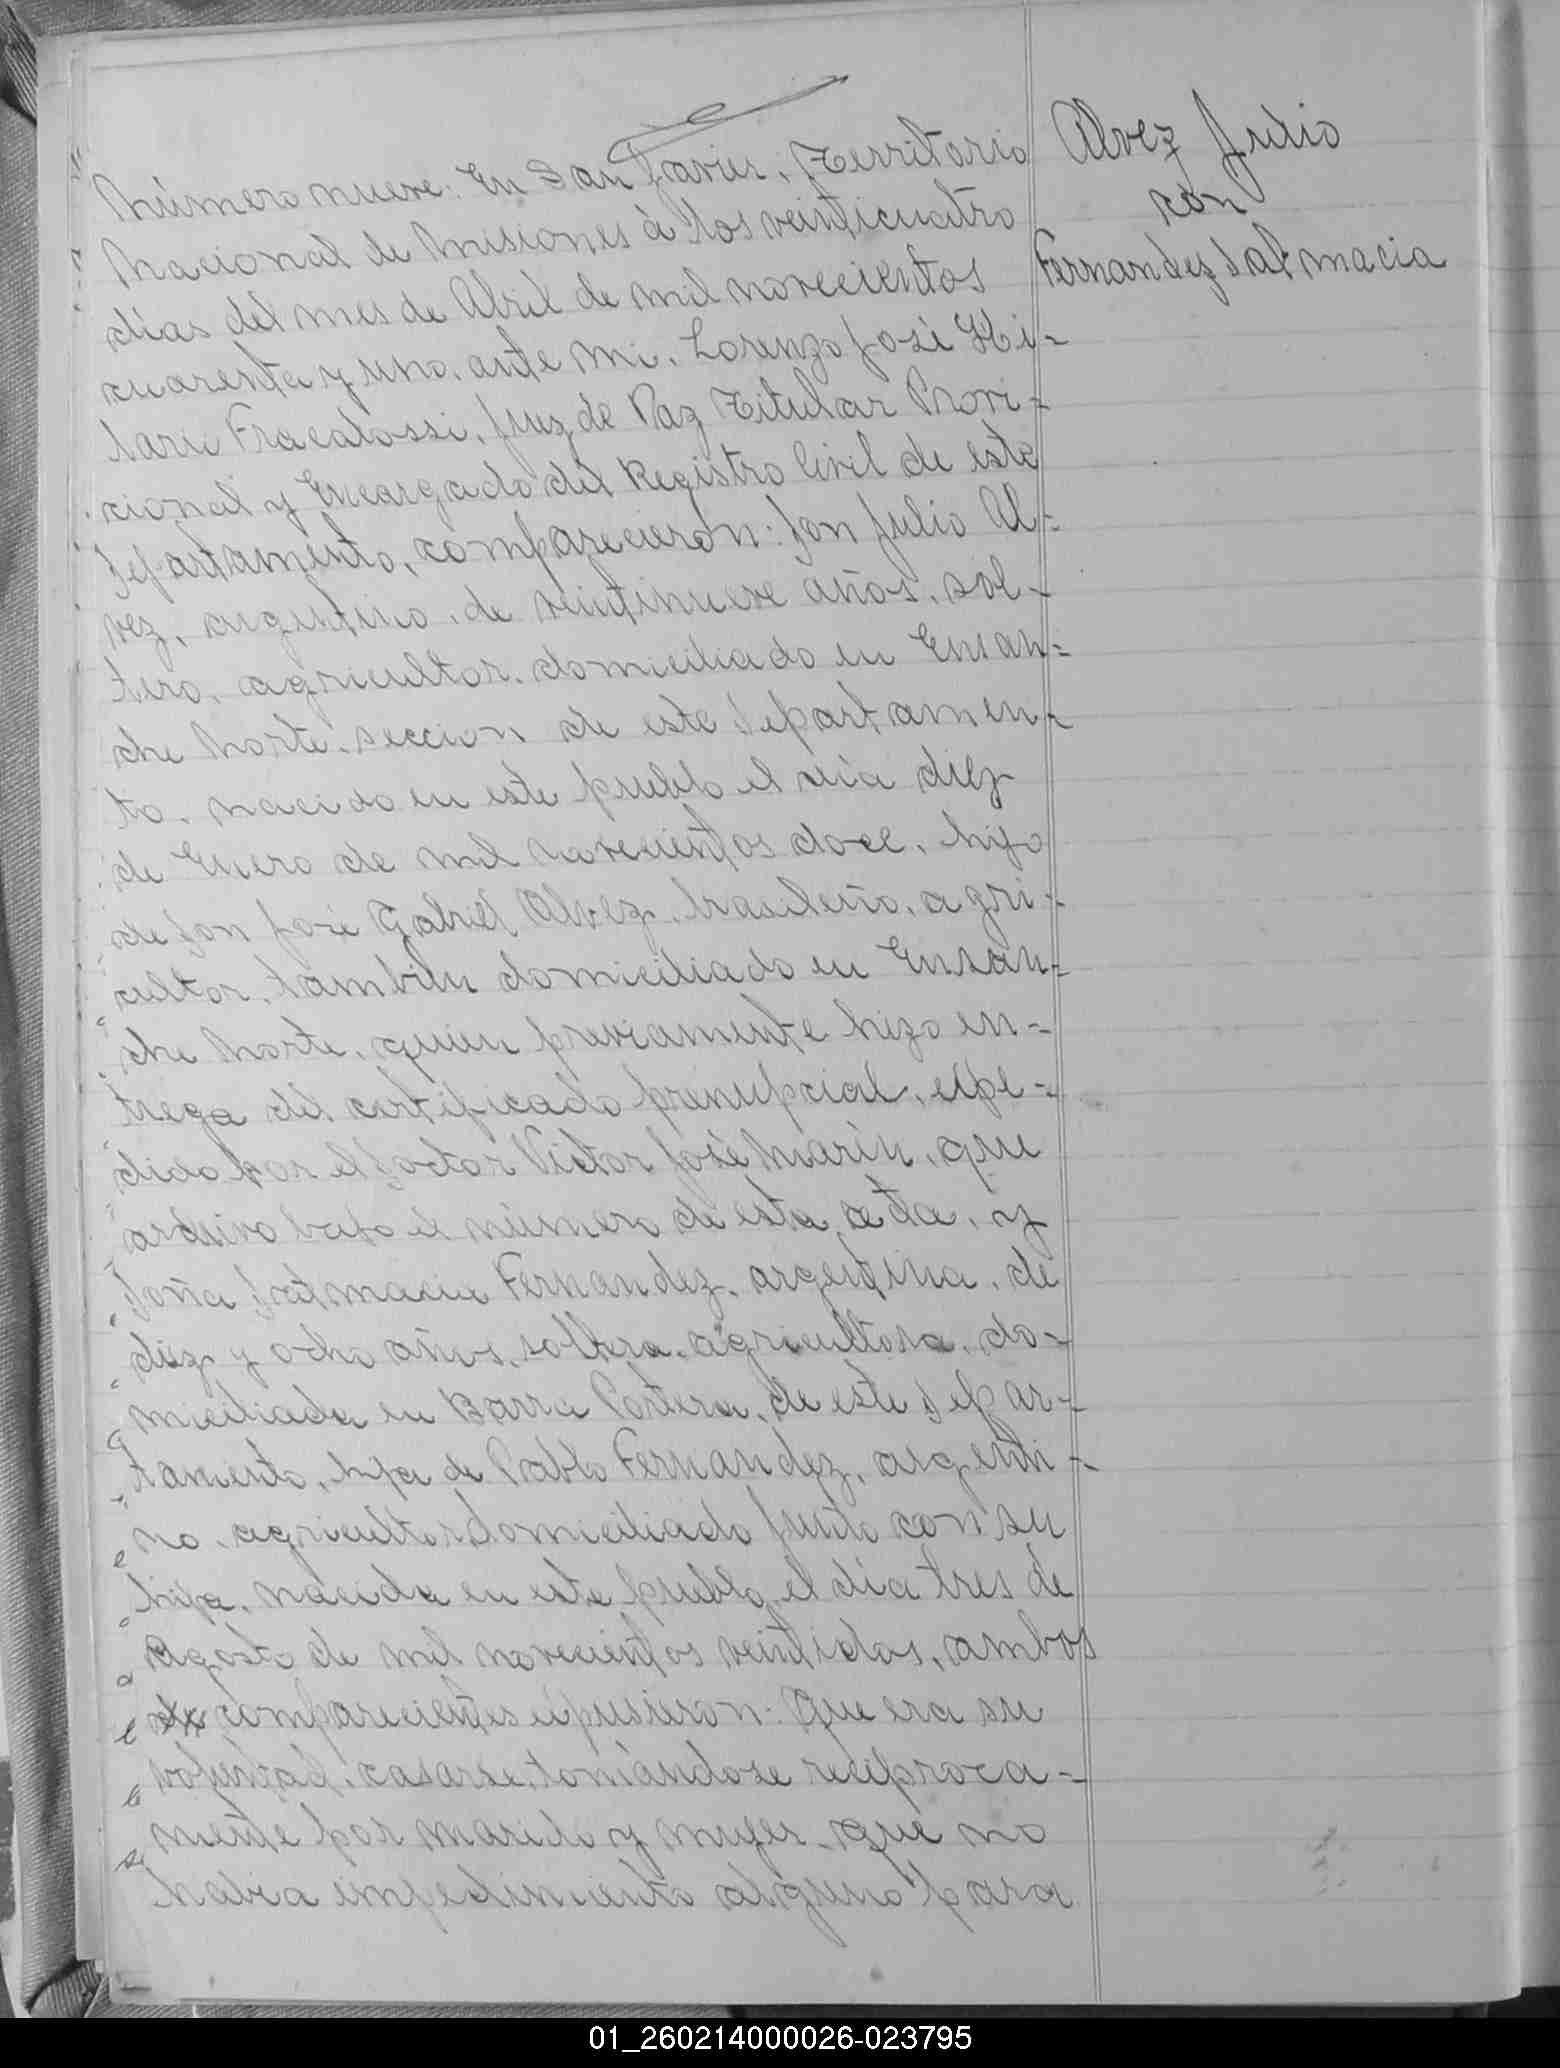 Número nueve: En San Javier, Territorio
Nacional de Misiones à los veinticuatro
días del mes de Abril de mil novecientos
cuarenta y uno, ante mi, Lorenzo José Hi-
lario Fracalossi, Juez de Paz Titular Provi-
cional y Encargado del Registro Civil de este
Departamento, comparecieron: Don Julio Al-
vez, argentino, de veintinueve años, sol-
tero, agricultor, domiciliado en Ensan-
che Norte, seccion de este Departamen-
to, nacido en este pueblo el día diez
de Enero de mil novecientos doce, hijo
de Don José Gabriel Alvez, brasileño, agri-
cultor, tambien domiciliado en Ensan-
che Norte, quien previamente hizo en-
trega del certificado prenupcial, expe-
dido por el Doctor Victor José Marín, que
archivo bajo el número de esta acta, y
Doña Dalmacia Fernandez, argentina, de
diez y ocho años, soltera, agricultora, do-
miciliada en Barra Portera, de este Depar-
tamento, hija de Pablo Fernandez, argenti-
no, agricultor domiciliado junto con su
hija, nacida en este pueblo el día tres de
Agosto de mil novecientos veintidos, ambos
comparecientes expusieron: Que era su
voluntad, casarse, tomándose reciproca-
mente por marido y mujer, que no
habia impedimento alguno para
Alvez Julio
con
Fernandez Dalmacia
01_260214000026-023795